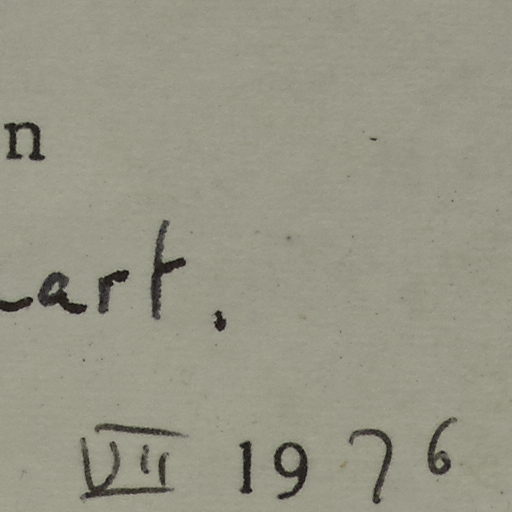 n
art.
VII 1976